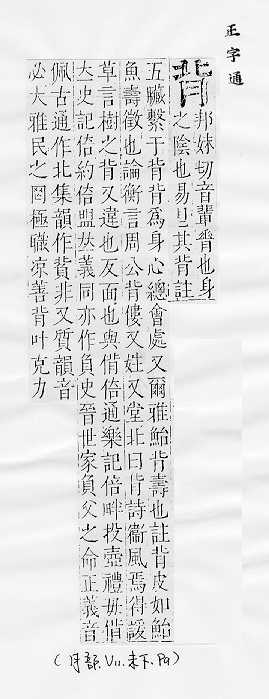 正字通
背
邦妹切音輩脊也身
之陰也易艮其背註
五臟繫于背背爲身心總會處又爾雅鮐背壽也註背皮如鮐
魚壽徵也論衡言周公背僂又姓又堂北曰背詩衞風焉得諼
草言樹之背又違也反面也與偝倍通樂記倍畔投壺禮毋偝
立史記倍約倍盟立義同亦作負史晉世家負父之命正義音
佩古通作北集韻作㸬非又質韻音
必大雅民之罔極職凉善背叶克力